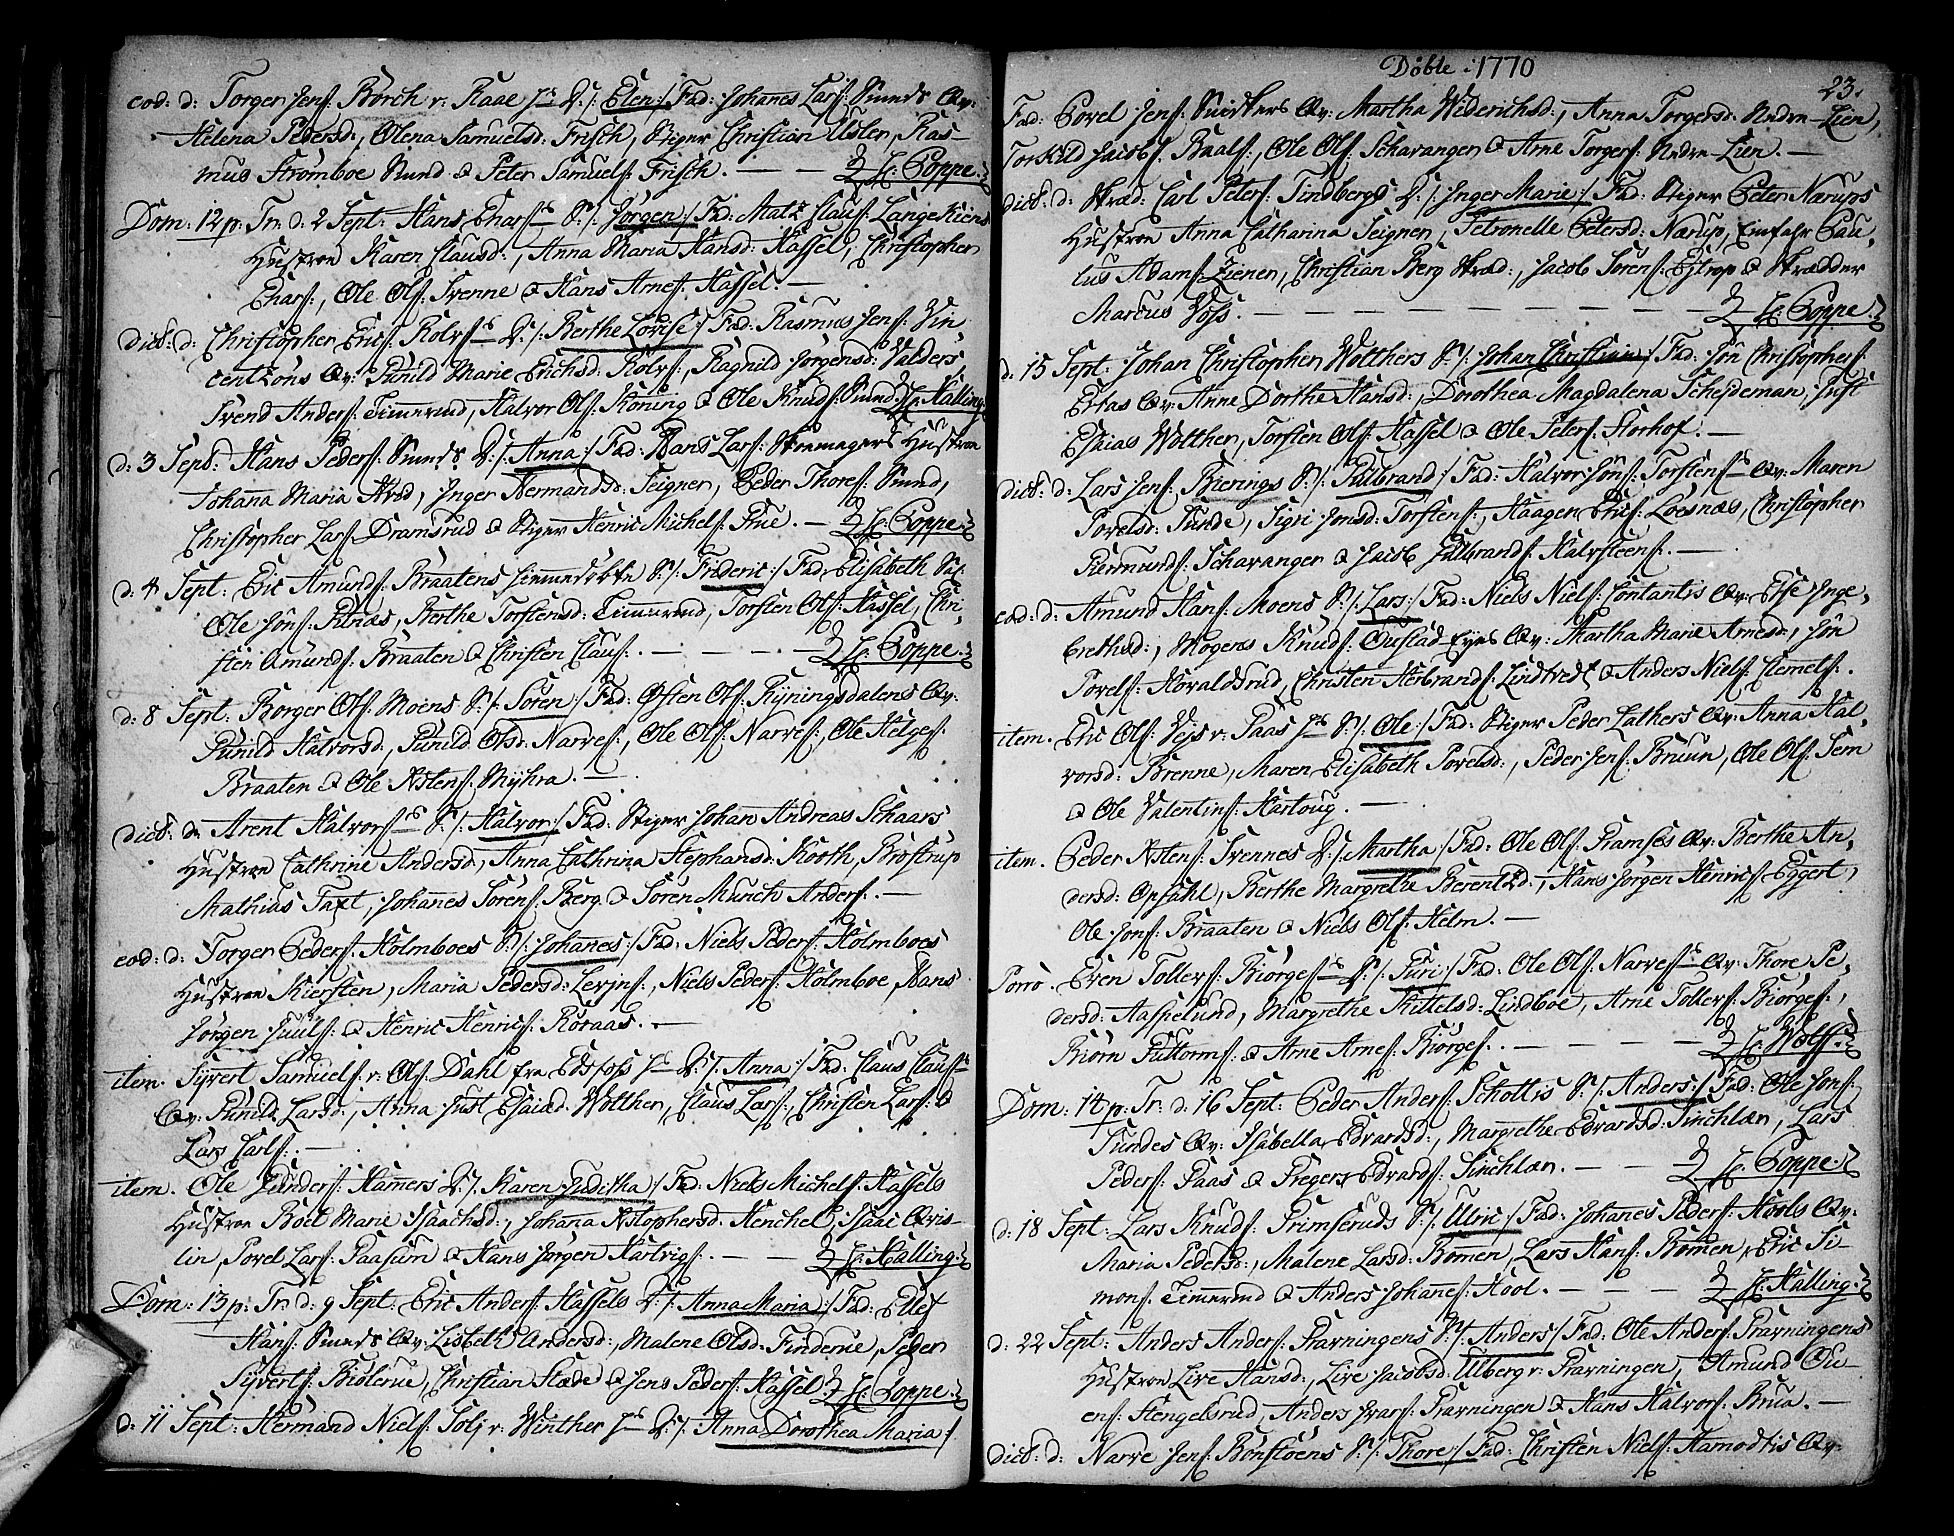 eod: d: Torger Jens: Borch v: Raae D:/: Elen:/ Fad: Johanes Lars: Smeds Qv:
Helena Pedersd:, Olena Samuelsd: Frisch, Stiger Christian Usler, Ras-
mus Strømboe Smed & Peter Samuels: Frisch. — — H: Poppe.
Dom: 12 p: Tr: d: 2 Sept: Hans Enars: S:/: Jørgen:/ Fad: Matz Claus: Langekiens
Hustroe Karen Clausd:, Anna Maria Hansd: Hassel, Christopher
Enars:, Ole Ols: Svenne & Hans Arnes: Hassel. —
dict: d: Christopher Erics: Rolvs: D:/: Berthe Lovise:/ Fad: Rasmus Jens: Vin
centzons Qv: Gunild Marie Erichsd: Rolvs:, Ragnild Jørgensd: Valders
Svend Anders: Timmerud, Halvor Ols: Kóning & Ole Knuds: Smed H: Halling
d: 3 Sept: Hans Peders: Smeds D:/: Anna:/ Fad: Hans Lars: Skomagers Hustroe
Johana Maria, Inger Hermandsd: Teigner, Peder Thores: Smed,
Christopher Lars: Dramsrud & Stiger Henric Michels: Prue. — H: Poppe.
d: 4 Sept: Eric Amunds: Braatens S:/: Frideric:/ Fad: Elisabeth
Ole Jóns:, Berthe Torstensd: Timmerud, Torsten Ols: Hassel, Chri-
sten Amunds: Braaten & Christen Claus: — — — H: Poppe.
d: 8 Sept: Borger Ols: Moens S:/: Søren:/ Fad: Østen Ols: Ryningsdalens Qv:
Gunild Halvorsd:, Gunild Olsd: Narves:, Ole Ols: Narves:, Ole Helges:
Braaten & Ole Astens: Myhra. —
dict: d: Arent Halvors: S:/: Halvor:/ Fad: Stiger Johan Andreas Schaars
Hustroe Cathrine Andersd:, Anna Cathrina Stephansd: Korth, Brostrup
Mathias Taxt, Johanes Sørens: Berg & Søren Munch Anders: —
eod: d: Torger Peders: Holmboes S:/: Johanes:/ Fad: Niels Peders: Holmboes
Hustroe Kiersten, Maria Pedersd:, Niels Peders: Holmboe, Hans
Jørgen Juuls: & Henric Henrics: Róraas. —
item. Syvert Samuels: v: Ols: Dahl fra Edsfoss D:/: Anna:/ Fad: Claus Claus:
Qv: Gunild Larsd:, Anna Just Esaiæd: Wolther, Claus Lars:, Christen Lars: &
Lars Carls: —
item. Ole Gunders: Hamers D:/: Karen Juditha:/ Fad: Niels Michels: Hassels
Hustroe Boel Marie Isaachsd:, Johana Xstophersd: Henchel, Isaac Qvis-
lin, Povel Lars: Paasúm & Hans Jørgen Hartvigs: — — H: Halling.
Dom: 13 p: Tr: d: 9 Sept: Eric Anders: Hassels D:/: Anna Maria:/ Fad: Ellef
Hans: Smeds Qv: Lisbeth Andersd:, Malene Olsd: Finderue, Peder
Syverts: Biølerue, Christian Stæde & Jens Peders: Hassel H: Poppe.
d: 11 Sept: Hermand Niels: Solj v: Winther D:/: Anna Dorothea Maria:/
Døbte i 1770
23.
Fad: Povel Jens: Snidkers Qv: Martha Widerichsd:, Anna Torgersd: Nedre-Lien,
Torkild Jacobs: Baals:, Ole Ols: Schavanger & Arne Torgers: Nedre-Lien. —
dict: d: Skræd: Carl Peters: Lindbergs D:/: Inger Marie:/ Fad: Stiger Peter Nærups
Hustroe Anna Catharina Teigner, Petronelle Petersd: Nærup, Einfahr Pau-
lus Adams: Ziener, Christian Berg Skræd:, Jacob Sørens: Estrop & Skrædder
Marcus Voss. — — — — — H: Poppe.
d: 15 Sept: Johan Christopher Wolthers S:/: Johan Christian:/ Fad: Jón Christophers:
Esias Qv: Anne Dorthe Hansd:, Dorothea Magdalena Scheideman, Just
Esaias Wolther, Torsten Ols: Hassel & Ole Peters: Storhof. —
dict: d: Lars Jens: Bierings S:/: Gulbrand:/ Fad: Halvor Jóns: Torstens: Qv: Maren
Povelsd: Gunde, Sigri Jonsd: Torstens:, Haagen Erics: Loesnæs, Christopher
Giermunds: Schavanger & Jacob Gulbrands: Halvsteens: —
eod: d: Amund Hans: Moens S:/: Lars:/ Fad: Niels Niels: Qv: Else Inge-
brethsd:, Mogens Knuds: Oustad Eyes Qv: Martha Marie Arnesd:, Jón
Povels: Horaldsrud, Christen Herbrands: & Anders Niels: Clemets:.
item. Eric Ols: Vejs v: Paas S:/: Ole:/ Fad: Stiger Peder Lathers Qv: Anna Hal-
vorsd: Brenne, Maren Elisabeth Povelsd:, Peder Jens: Bruun, Ole Ols: Sem
& Ole Valentins: Hartoug. —
item. Peder Astens: Svennes D:/: Martha:/ Fad: Ole Ols: Ramses Qv: Berthe An-
dersd: Opsahl, Berthe Margrethe Berentzd:, Hans Jørgen Henrics: Eggert,
Ole Jons: Braaten & Niels Ols: Helm. —
Porro. Even Tollefs: Biørges: D:/: Guri:/ Fad: Ole Ols: Narves: Qv: Thore Pe-
dersd: Aaspelund, Margrethe Kittelsd: Lindboe, Arne Tollefs: Biørges:,
Biørn Guttorms: & Arne Arnes: Biørges:. — — — — H: Wolff.
Dom: 14 p: Tr: d: 16 Sept: Peder Anders: Schottis S:/: Anders:/ Fad: Ole Jons:
Gundes Qv: Isabella Edvardsd:, Margrethe Edvardsd: Sinchlær, Lars
Peders: Paas & Gregers Edvards: Sinchlær. — — H: Poppe.
d: 18 Sept: Lars Knuds: Grimseruds S:/: Ulric:/ Fad: Johanes Peders: Hools Qv:
Maria Pedersd:, Malene Larsd: Bómen, Lars Hans: Bómen, Eric Si-
mons: Timmerud & Anders Johanes: Hool. — — — H: Halling.
d: 22 Sept: Anders Anders: Pravningens S:/: Anders:/ Fad: Ole Anders: Pravningens
Hustroe Live Hansd:, Live Jacobsd: Ulberg v: Pravningen, Amund Ou-
ens: Hengelsrud, Anders Ivars: Pravningen & Hans Halvors: Brua. —
dict: d: Narve Jens: Bónstóens S:/: Thore:/ Fad: Christen Niels: Hamodtis Qv: